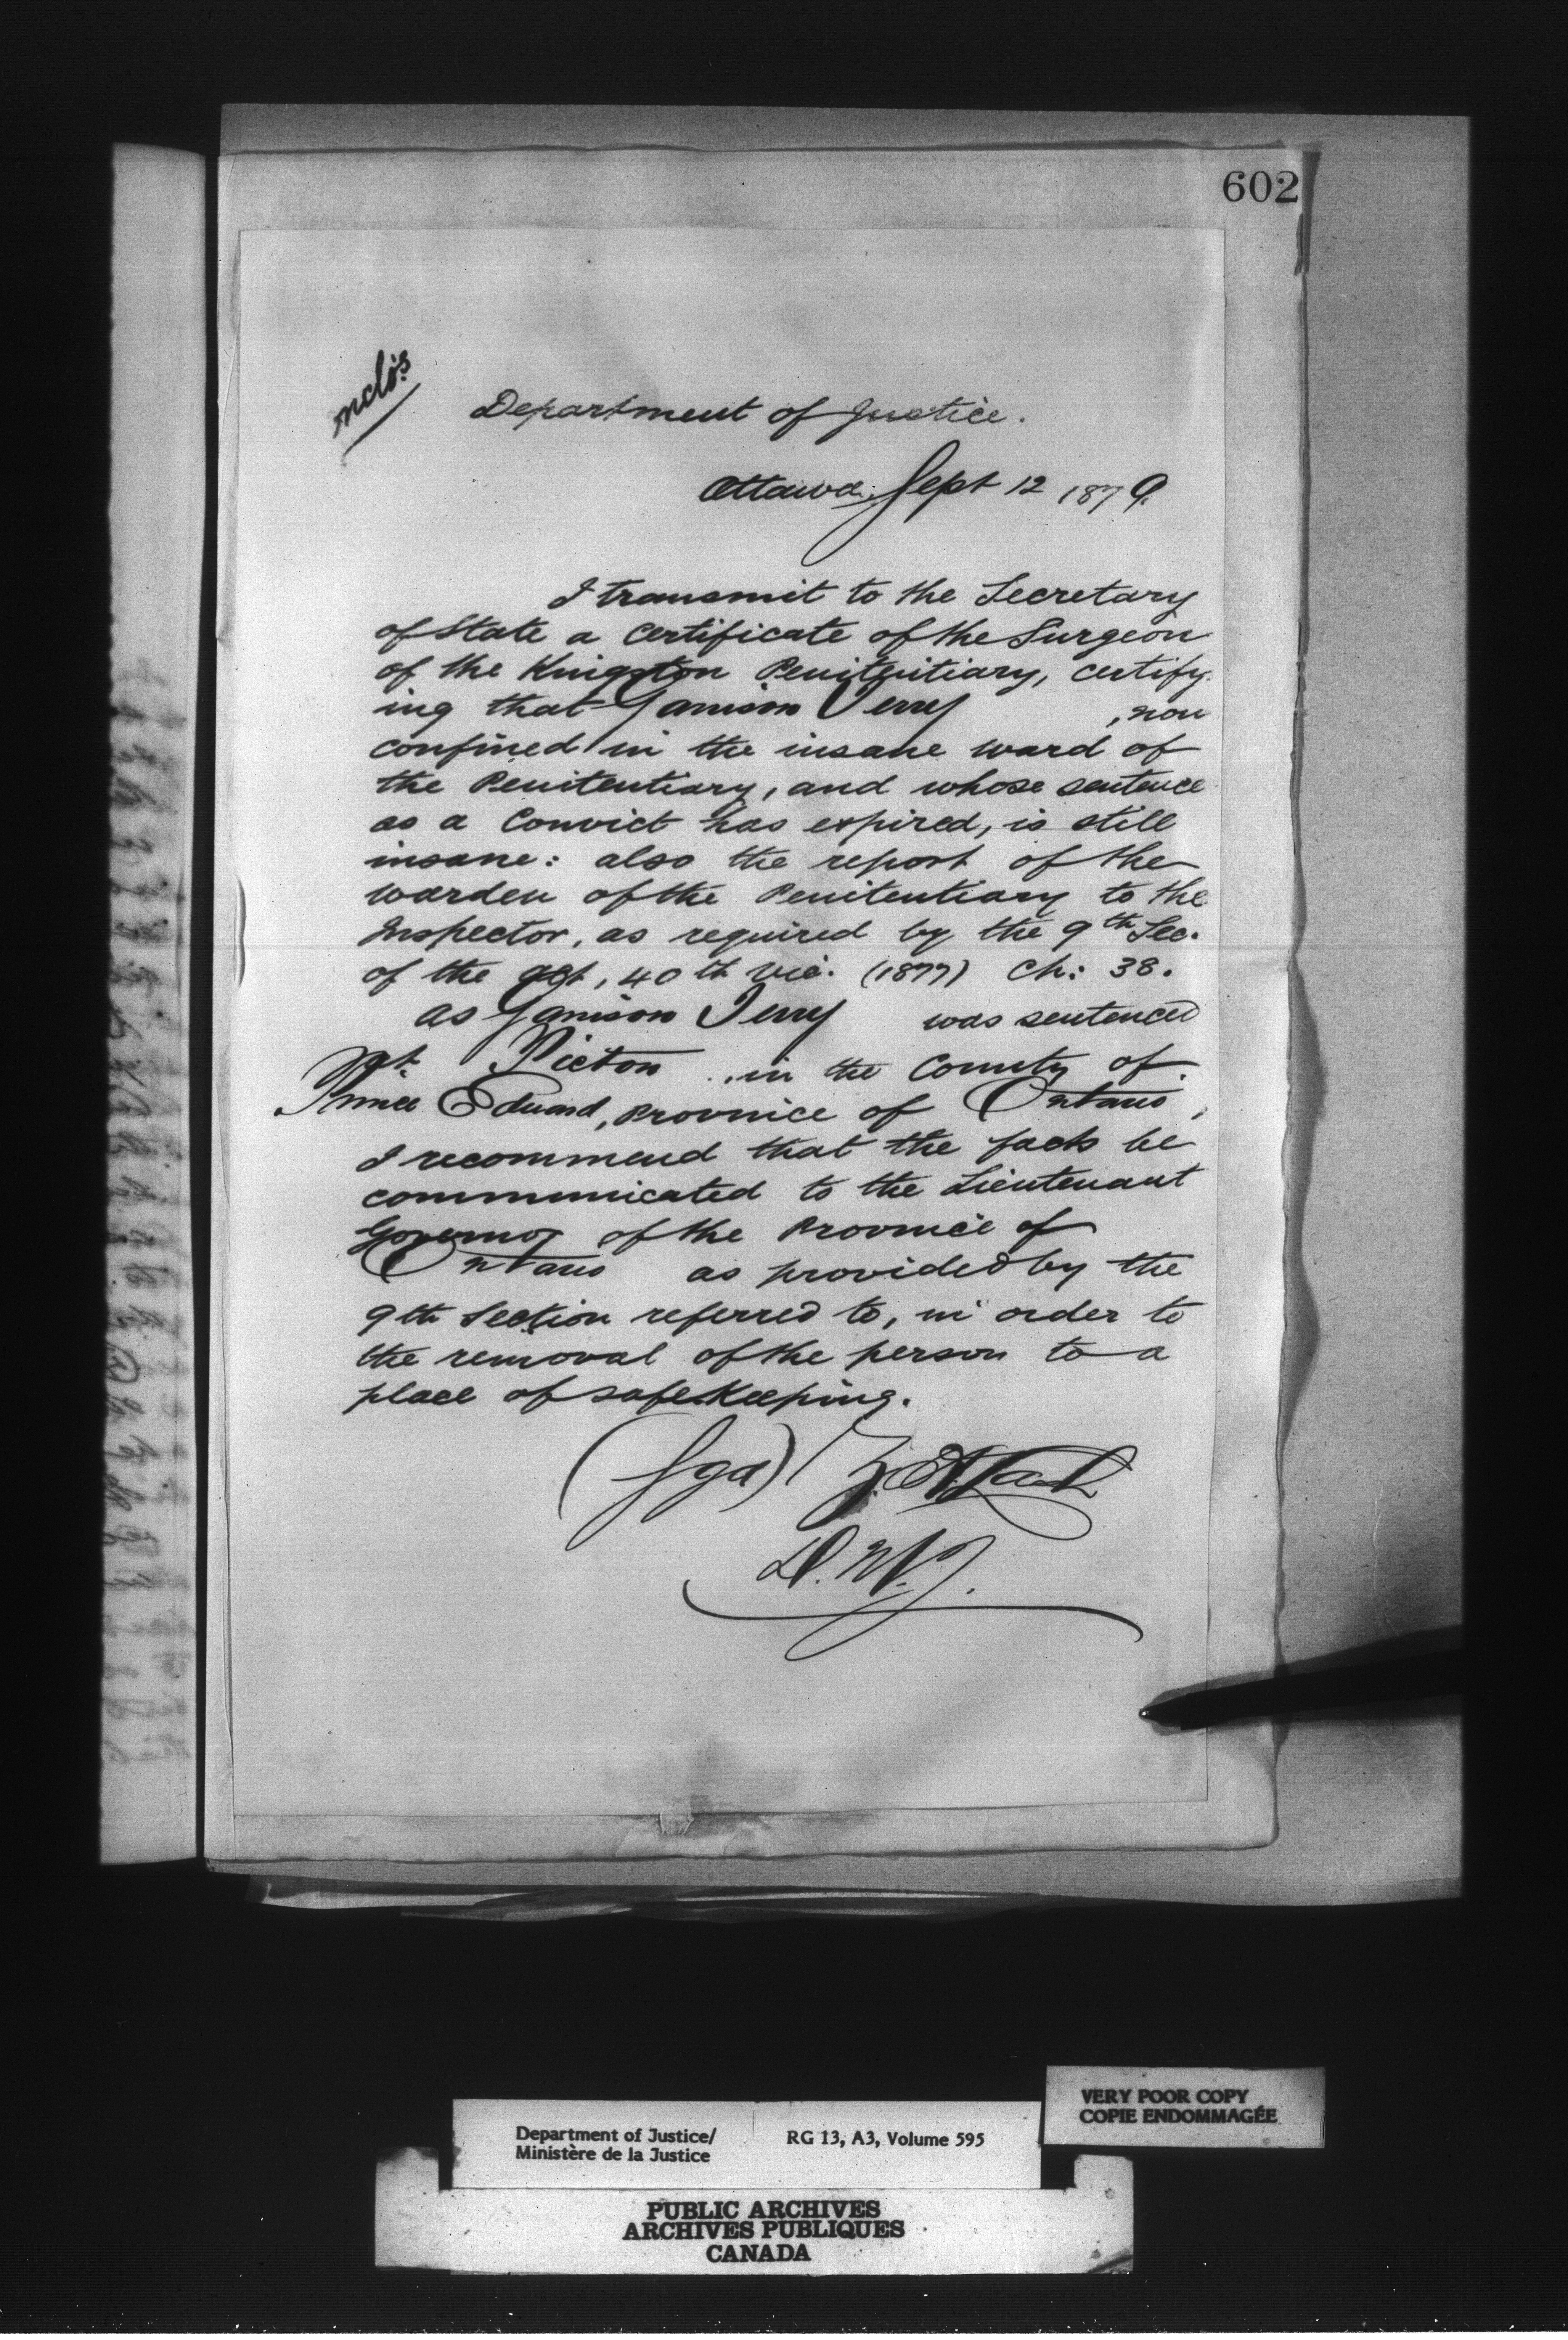 602
nclo's
Department of Justice.
Ottawa, Sept 12 1879.
I transmit to the Secretary
of State a Certificate of the Surgeon
of the Kingston Penitentiary, certify-
ing that Jamison Terry , now
confined in the insane ward of
the Penitentiary, and whose sentence
as a Convict has expired, is still
insane: also the report of the
Warden of the Penitentiary to the
Inspector, as required by the 9th Sec.
of the act, 40th Vic. (1877) Ch: 38.
As Jamison Terry was sentenced
at Picton , in the County of
Prince Edward, Province of Ontario,
I recommend that the facts be
communicated to the Lieutenant
Governor of the Province of
Ontario as provided by the
9th Section referred to, in order to
the removal of the person to a
place of safe Keeping.
(Sgd)
D.M.J.
Department of Justice/
Ministère de la Justice
RG 13, A3, Volume 595
VERY POOR COPY
COPIE ENDOMMAGÉE
PUBLIC ARCHIVES
ARCHIVES PUBLIQUES
CANADA